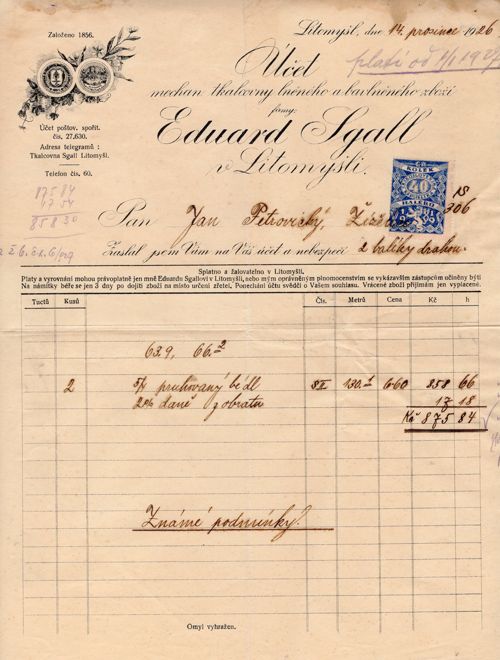 Založeno 1856.
Účet poštov. spořit.
čís. 27.630.
Adresa telegramů:
Tkalcovna Sgall Litomyšl.
Telefon čís. 60.
8784
1754
85830
Litomyšl, dne 14. prosince 1926
platí od 1/1 1927
Účet
mechan. tkalcovny lněného a bavlněného zboží
firmy:
Eduard Sgall
v Litomyšli.
KOLEK
40
HALÉŘŮ
18
306
Pan Jan Petrovický,
Zaslal jsem Vám na Váš účet a nebezpečí 2 balíky drahou.
Splatno a žalovatelno v Litomyšli.
Platy a vyrovnání mohou právoplatně jen mně Eduardu Sgallovi v Litomyšli, nebo mým oprávněným plnomocenstvím se vykázavším zástupcům učiněny býti
Na námitky béře se jen 3 dny po dojití zboží na místo určení zřetel. Ponechání účtu svědčí o Vašem souhlasu. Vrácené zboží přijímám jen vyplacené.
Tuctů Kusů Čís. Metrů Cena Kč h
63.9, 66.2
2 5/4 pruhovaný bědl 130.1 6·60 858 66
2% daně z obratu 17 18
Kč 875 84
Známé podmínky.
Omyl vyhražen.